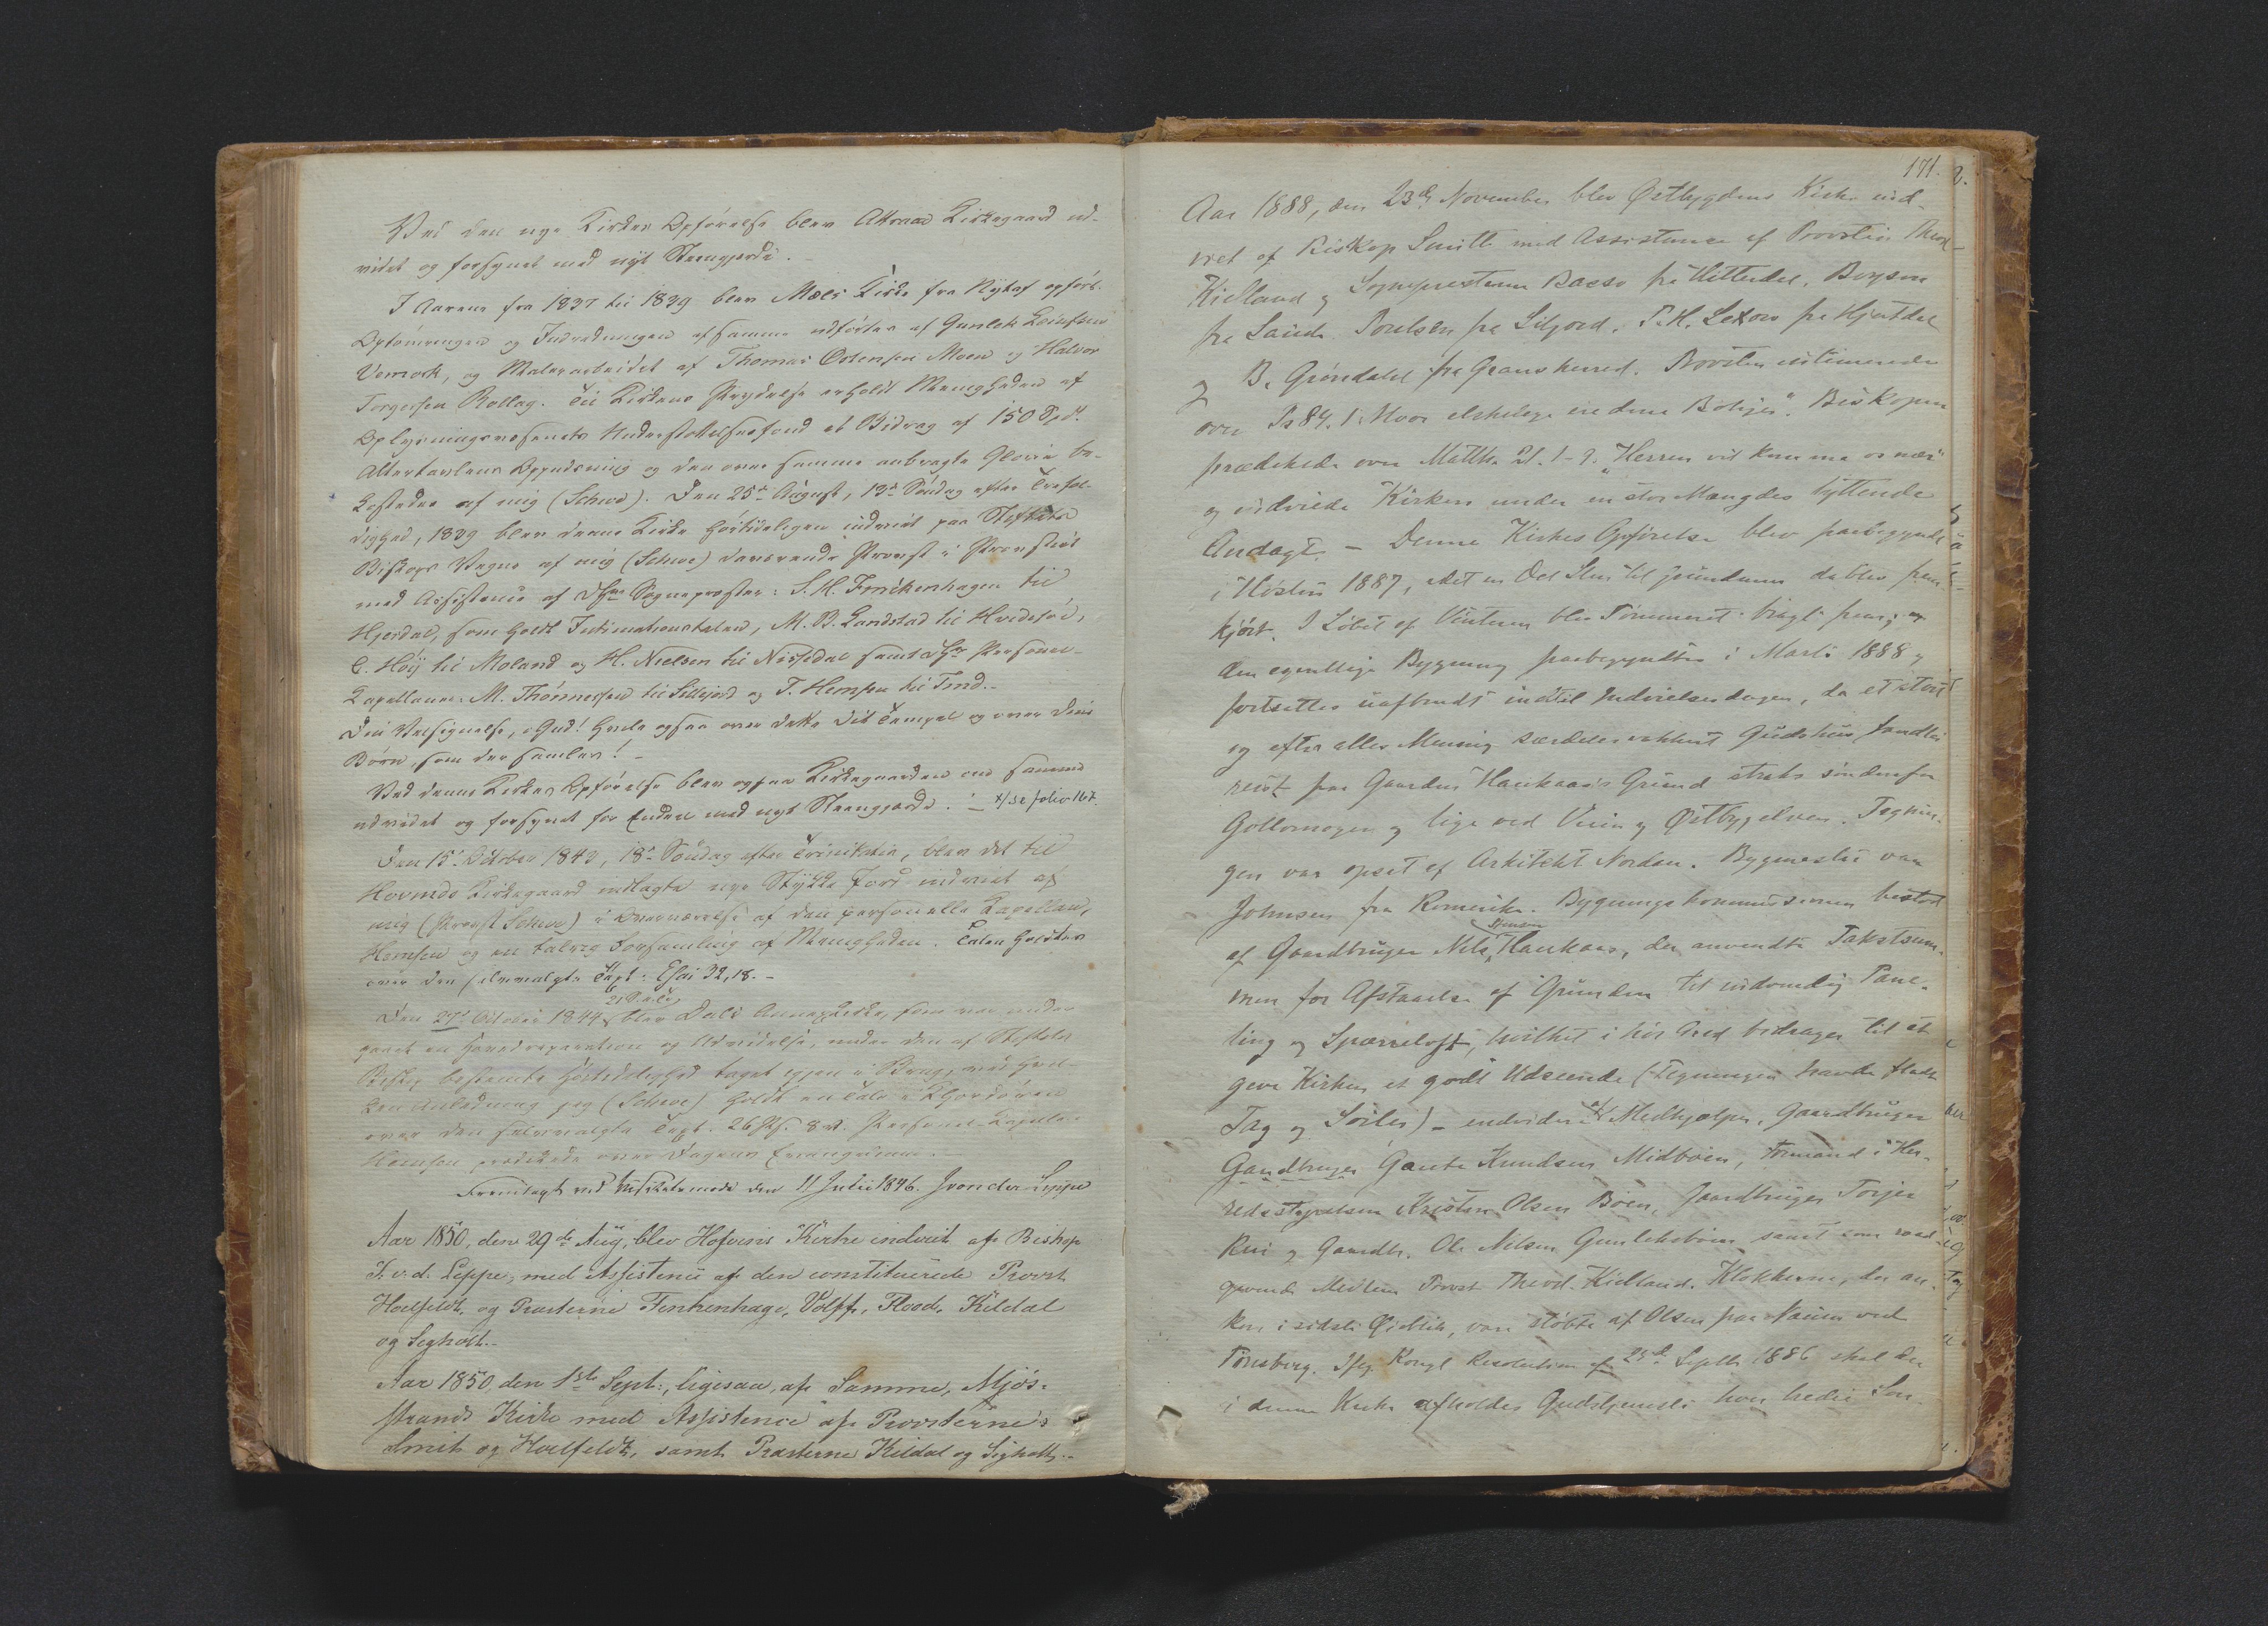 Ved den nye Kirkes Opførelse blev Attraae Kirkegaard ud-
videt og forsynet med nyt Steengjerde.
I Aarene fra 1837 til 1839 blev Mæls Kirke fra Nyt af opført.
Optømringen og Indredningen af samme udførtes af Gunlek Leiufsen
Vemork, og Malerarbeidet af Thomas Ostensen Moen og Halvor
Torgersen Rollag. Til Kirkens Prydelse erholdt Menigheden af
Oplysningsvæsenets Understøttelsesfond et Bidrag af 150 Spd.
Altertavlens Oppudsning og den over samme anbragte Gloria be-
kostedes af mig (Schive). Den 25de August, 13de Søndag efter Trefol-
dighed, 1839 blev denne Kirke høitideligen indviet paa Stiftets
Biskops Vegne af mig (Schive) værende Provst i Provstiet
med Assistence af DHrr Sognepræster: S. H. Finckenhagen til
Hjerdal, som holdt Intimationstalen, M. B. Landstad til Hvidesøe,
C. Høy til Moland og H. Nielsen til Nissedal samt DHrr Personel-
Kapellaner: M. Thønnesen til Sillejord og T. Hemsen til Tind.
Din Velsignelse, o Gud! hvile ogsaa over dette Dit Tempel og over Dine
Børn, som der samles!
Ved denne Kirkes Opførelse blev ogsaa Kirkegaarden om samme
udvidet og forsynet for Enden med nyt Steengjerde. – x/ se folio 167.
Den 15de October 1843, 18de Søndag efter Trinitatis, blev det til
Hovinds Kirkegaard indlagte nye Stykke Jord indviet af
mig (Provst Schive) i Overværelse af den personelle Kapellan,
Hemsen og en talrig Forsamling af Menigheden. Talen holdtes
over den selvvalgte Text: Esai 32,18.
Den 27de October 1844, blev Dals Annexkirke, som var under-
gaaet en Hovedreparation og Udvidelse, under den af Stiftets
Biskop bestemte Høitidelighed taget igjen i Brug, ved hvil-
ken Anledning jeg (Schive) holdt en Tale i Chordøren
over den selvvalgte Text: 26 Ps. 8 v. Personel-Kapellan
Hemsen prædikede over Dagens Evangelium.
Fremlagt ved Visitatsmøde den 11 Julii 1846. J von der Lippe
Aar 1850, den 29de Aug, blev Hofvins Kirke indviet af Biskop
J. v. d. Lippe, med Assistence af den constituerede Provst
Hoelfeldt, og Præsterne Finkenhage, Volff, Flood, Kildal
og Segholt.–
Aar 1850, den 1ste Sept:, ligesaa, af Samme, Mjøs-
strands Kirke med Assistence af Provsterne
Smit og Hoelfeldt, samt Præsterne Kildal og Sigholt.–
171.
Aar 1888, den 23de November blev Østbygdens Kirke ind-
viet af Biskop Smitt med Assistance af Provsten Theod.
Kielland og Sognepresterne Basso fra Hitterdal, Boysen
fra Saude, Poulsen fra Siljord, P. H. Lexow fra Hjertdal
og B. Grøndahl fra Gransherred. Provsten intimerede
over Ps 84. 1. "Hvor elskelige ere dine Boliger". Biskopen
prædikede over Matth. 21. 1-9. "Herren vil komme os nær"
og indviede Kirken under en stor Mængdes lyttende
Andagt. – Denne Kirkes Opførelse blev paabegyndt
i Høsten 1887, idet en Del Sten til Grunden da blev frem-
kjørt. I Løbet af Vinteren blev Tømmeret bragt frem; og
den egentlige Bygning paabegyndtes i Marts 1888 og
fortsattes uafbrudt indtil Indvielsesdagen, da et stort
og efter alles Mening særdeles vakkert Gudshus fandtes
reist paa Gaarden Haukaas's Grund straks søndenfor
Gollomogen og lige ved Veien og Østbygelven. Tegnin-
gen var opsat af Arkitekt Nordan. Bygmester var
Johnsen fra Romerike. Bygningskommissionen bestod
af Gaardbruger Nils Haukaas, der anvendte Takstsum-
men for Afstaaelse af Grunden til indvendig Pane-
ling og Sparreloft, hvilket i høi Grad bidrager til at
give Kirken et godt Udseende (Tegningen havde fladt
Tag og Søiler) – endvidere af Medhjælper, Gaardbruger
Gaardbruger Gaute Knudsen Midbøen, Formand i Her-
redsstyrelsen Kristen Olsen Bøen, Gaardbruger Torjer
Rui og Gaardbr. Ole Nilsen Gunleksbøen samt som raad-
givende Medlem Provst Theod. Kielland. Klokkerne, der an-
kom i sidste Øieblik, vare støbte af Olsen paa Nauen ved
Tønsberg. Iflg. Kongl. Resolution af 25de Septbr 1886 skal der
i denne Kirke afholdes Gudstjeneste hver tredie Søn-